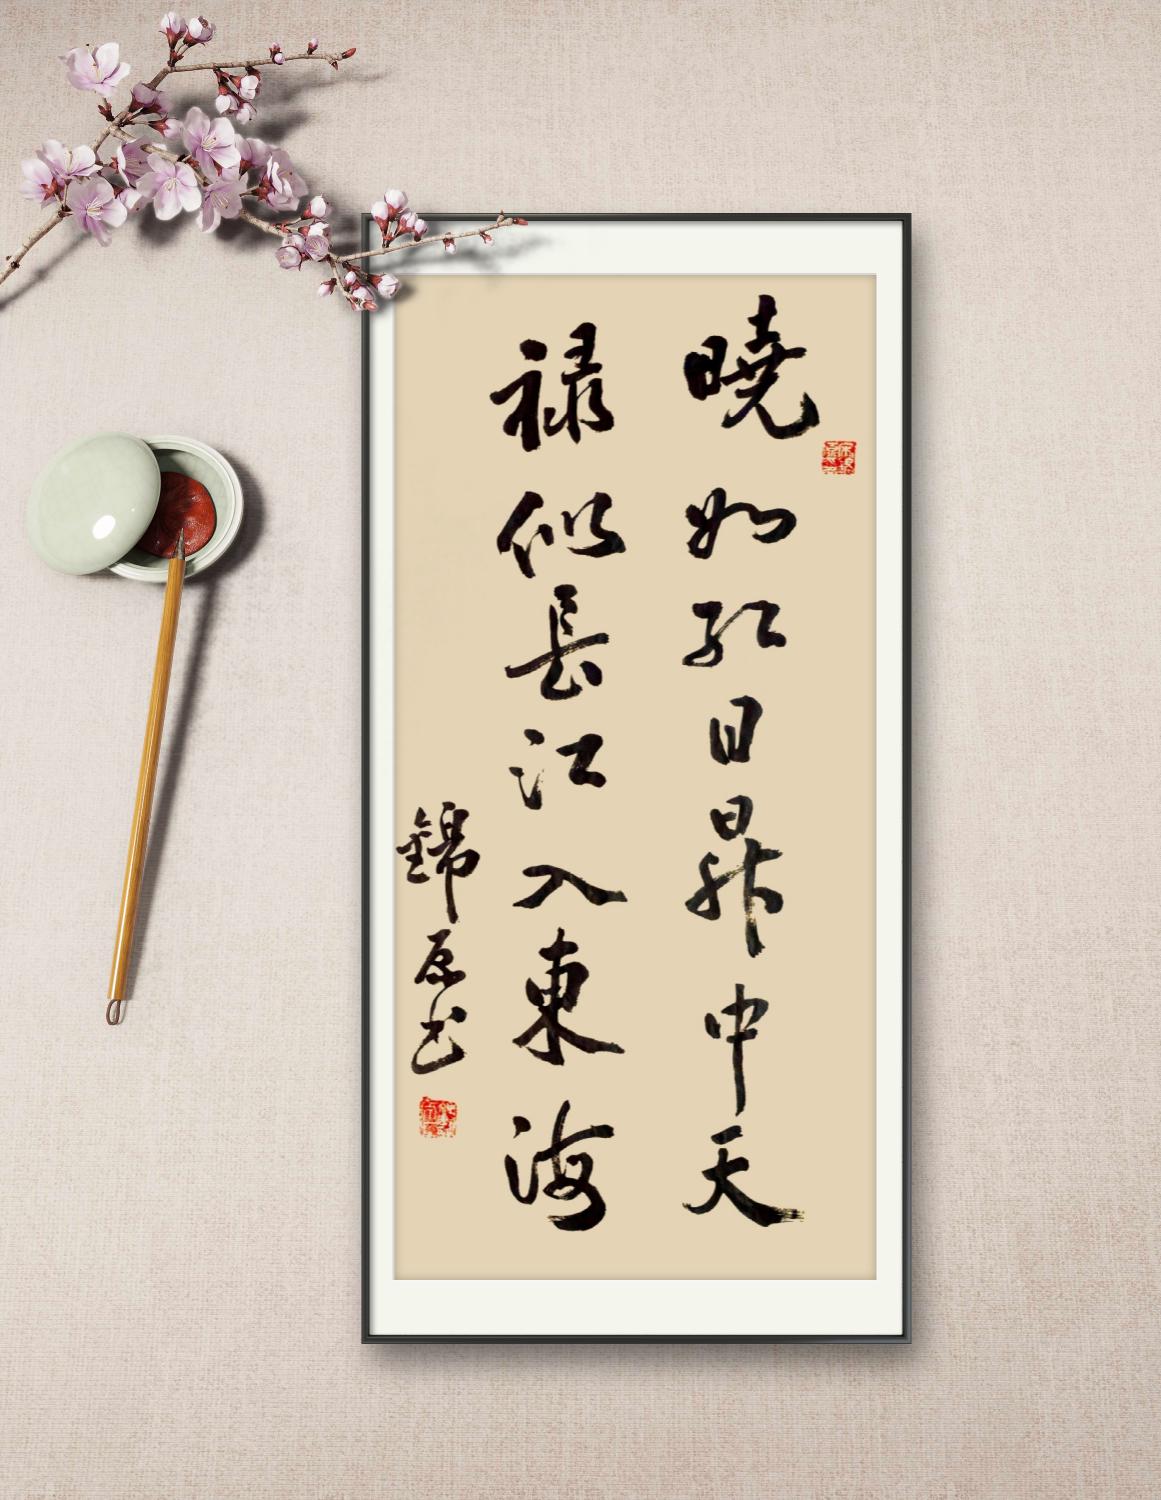 曉如紅日昇中天
禄似長江入東海
錦原书